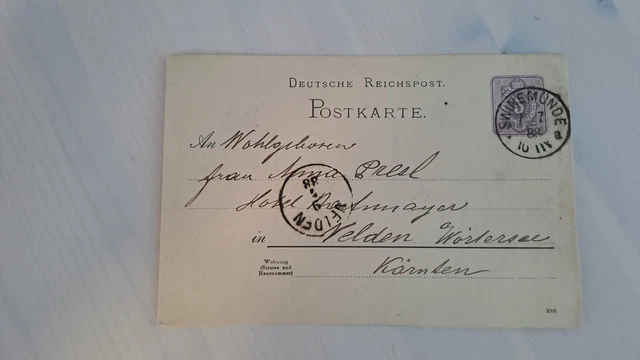 DEUTSCHE REICHSPOST.
POSTKARTE.
SWINEMÜNDE
7
88
10 11V
a
An Wohlgeboren
frau Anna Presl
Hotel
in Velden Wörtersee
Kärnten
VELDEN
88
Wohnung
(Strasse und
Hausnummer)
288